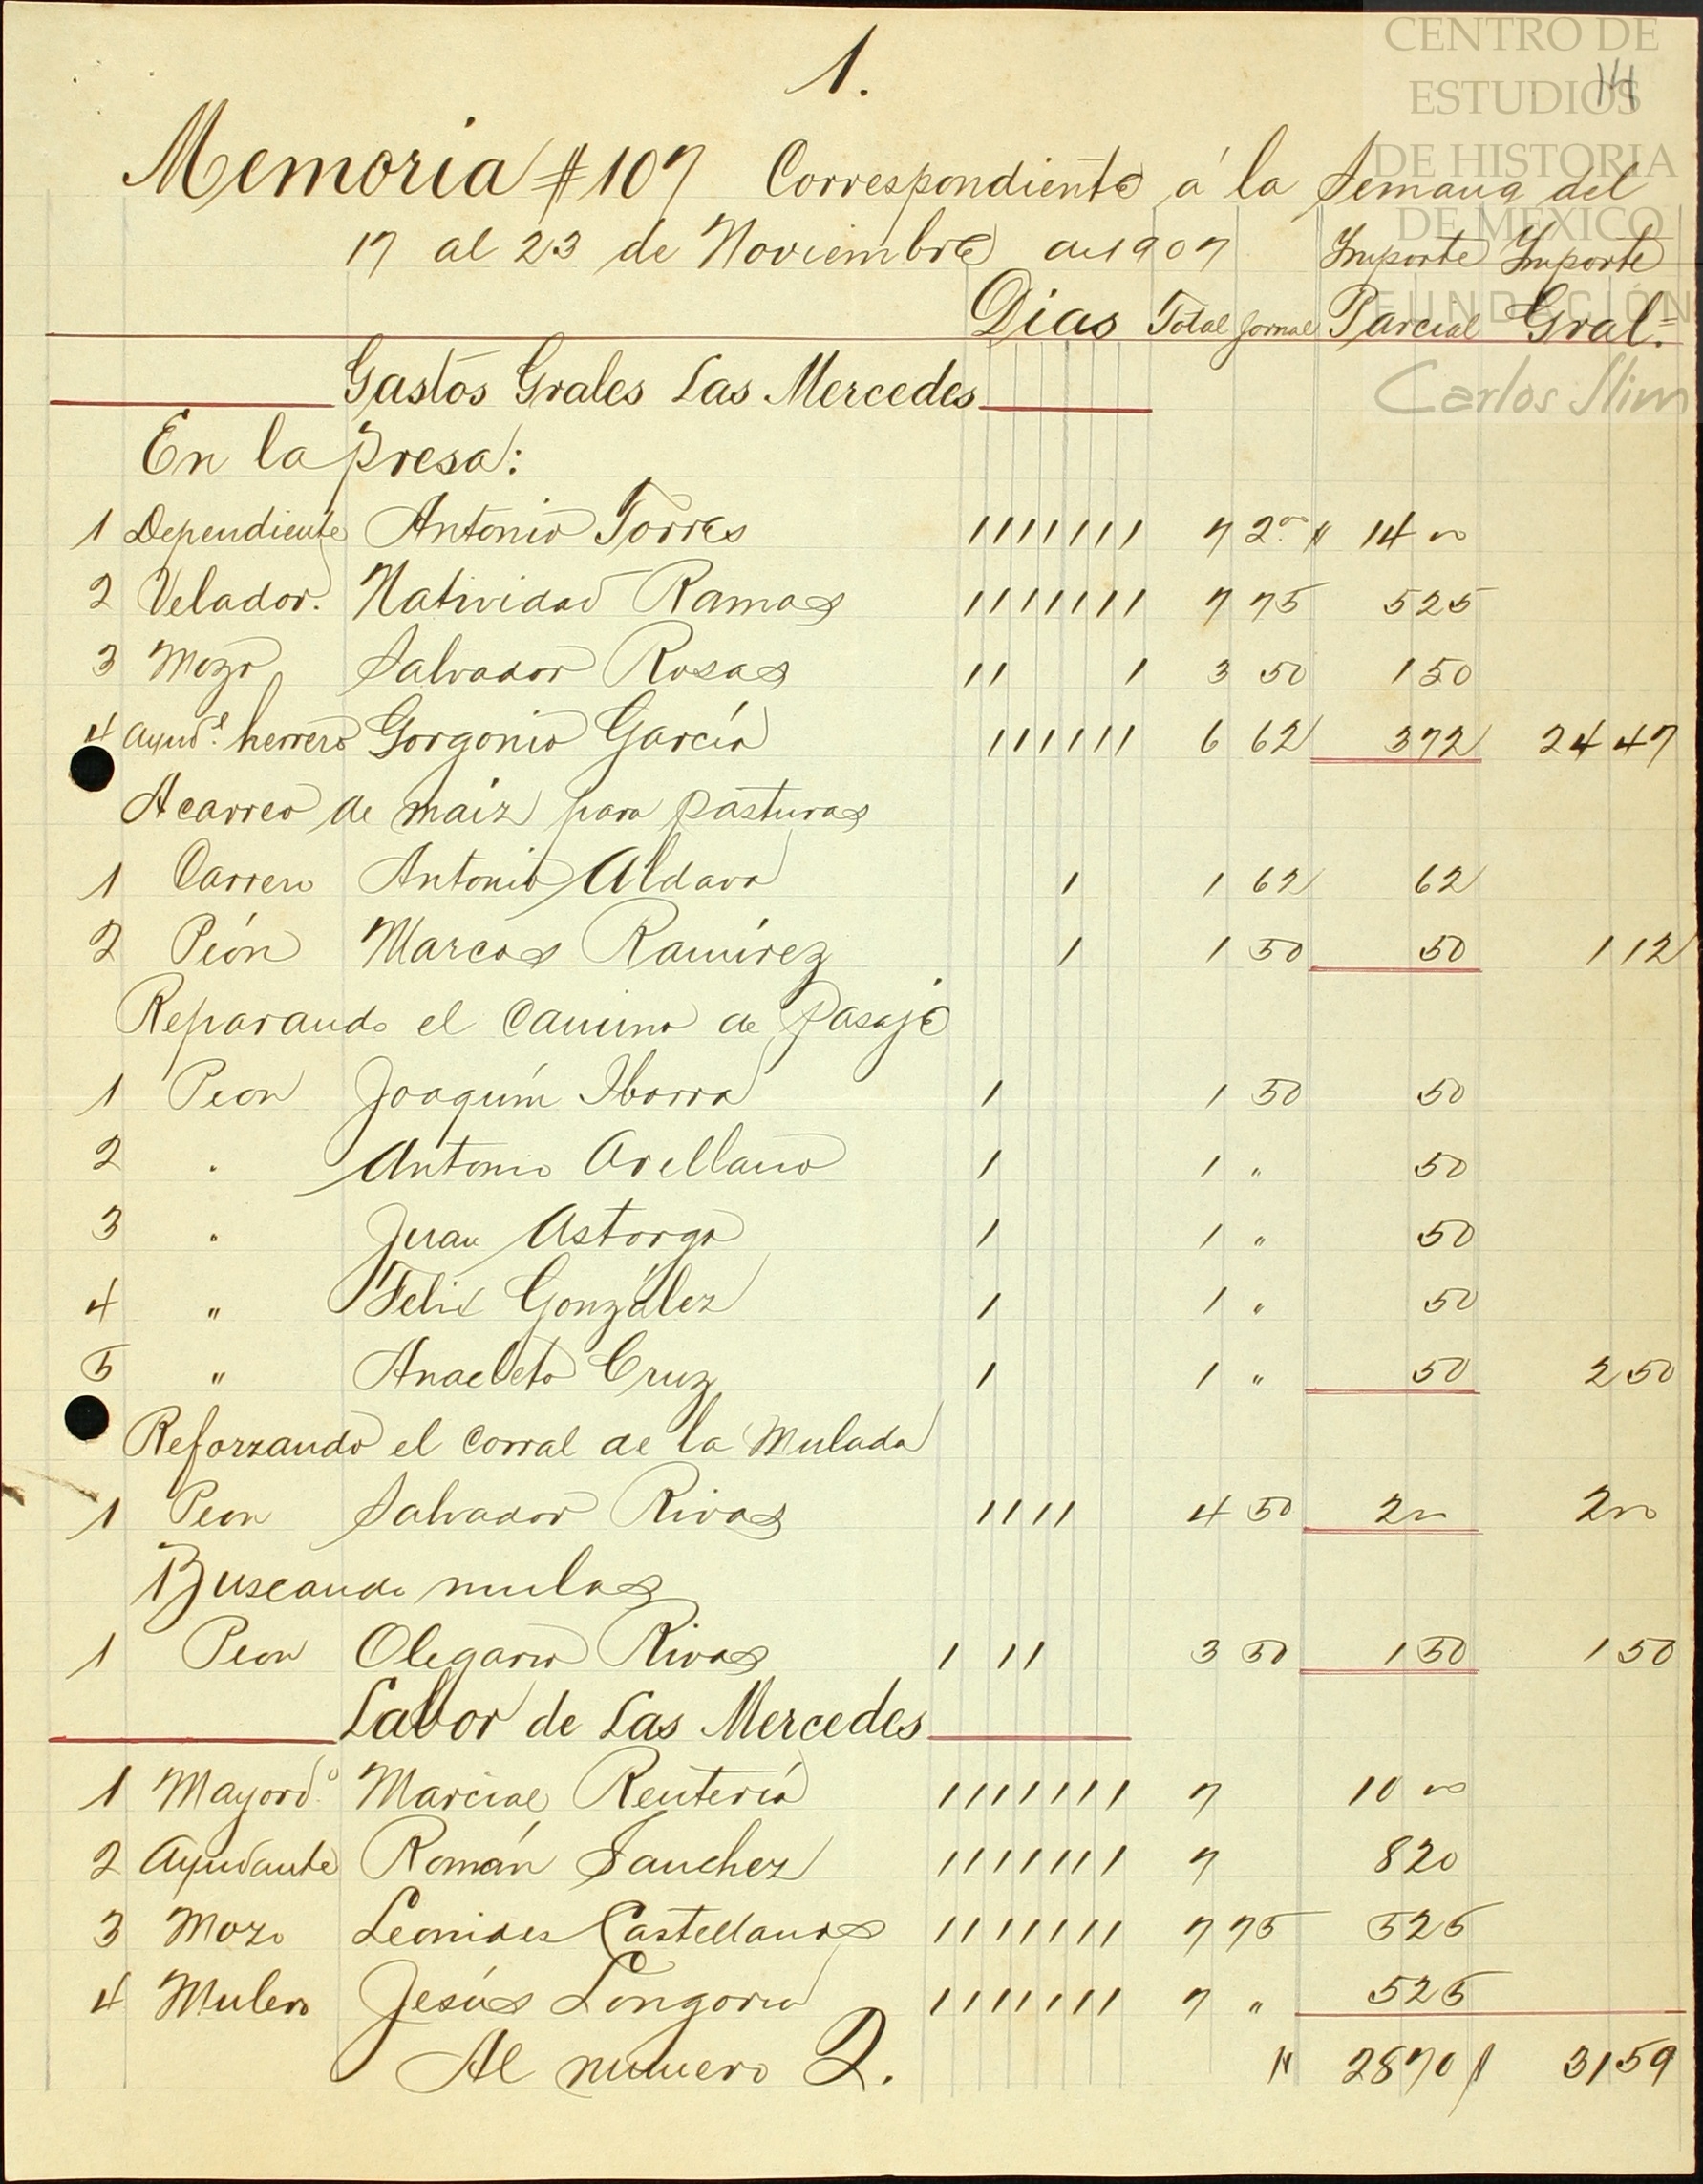 1.
14
CENTRO DE
ESTUDIOS
DE HISTORIA
DE MÉXICO
FUNDACIÓN
Carlos Slim
Memoria #107 Correspondiente á la Semana del
17 al 23 de Noviembre de 1907 Importe Importe
Dias Total Jornal Parcial Gral.
Gastos Grales Las Mercedes
En la presa:
1 Dependiente Antonio Torres 1111111 7 2.00 " 14 00
2 Velador. Natividad Ramos 1111111 7 75 5 25
3 Mozo Salvador Rosas 11 1 3 50 1 50
4 Ayud.e herrero Gorgonio García 111111 6 62 3 72 24 47
Acarreo de maiz para pasturas
1 Carrero Antonio Aldava 1 1 62 62
2 Peón Marcos Ramírez 1 1 50 50 1 12
Reparando el camino de pasaje
1 Peon Joaquím Ibarra 1 1 50 50
2 " Antonio Arellano 1 1 " 50
3 " Juan Astorga 1 1 " 50
4 " Felix González 1 1 " 50
5 " Anacleto Cruz 1 1 " 50 2 50
Reforzando el corral de la Mulada
1 Peon Salvador Rivas 1111 4 50 2 00 2 00
Buscando mulas
1 Peon Olegario Rivas 1 11 3 50 1 50 1 50
Labor de Las Mercedes
1 Mayord.o Marcial Rentería 1111111 7 10 00
2 Ayudante Román Sanchez 1111111 7 8 20
3 Mozo Leonides Castellanos 1111111 7 75 5 25
4 Mulero Jesús Longoria 1111111 7 " 5 25
Al numero 2. " 28 70 " 31 59